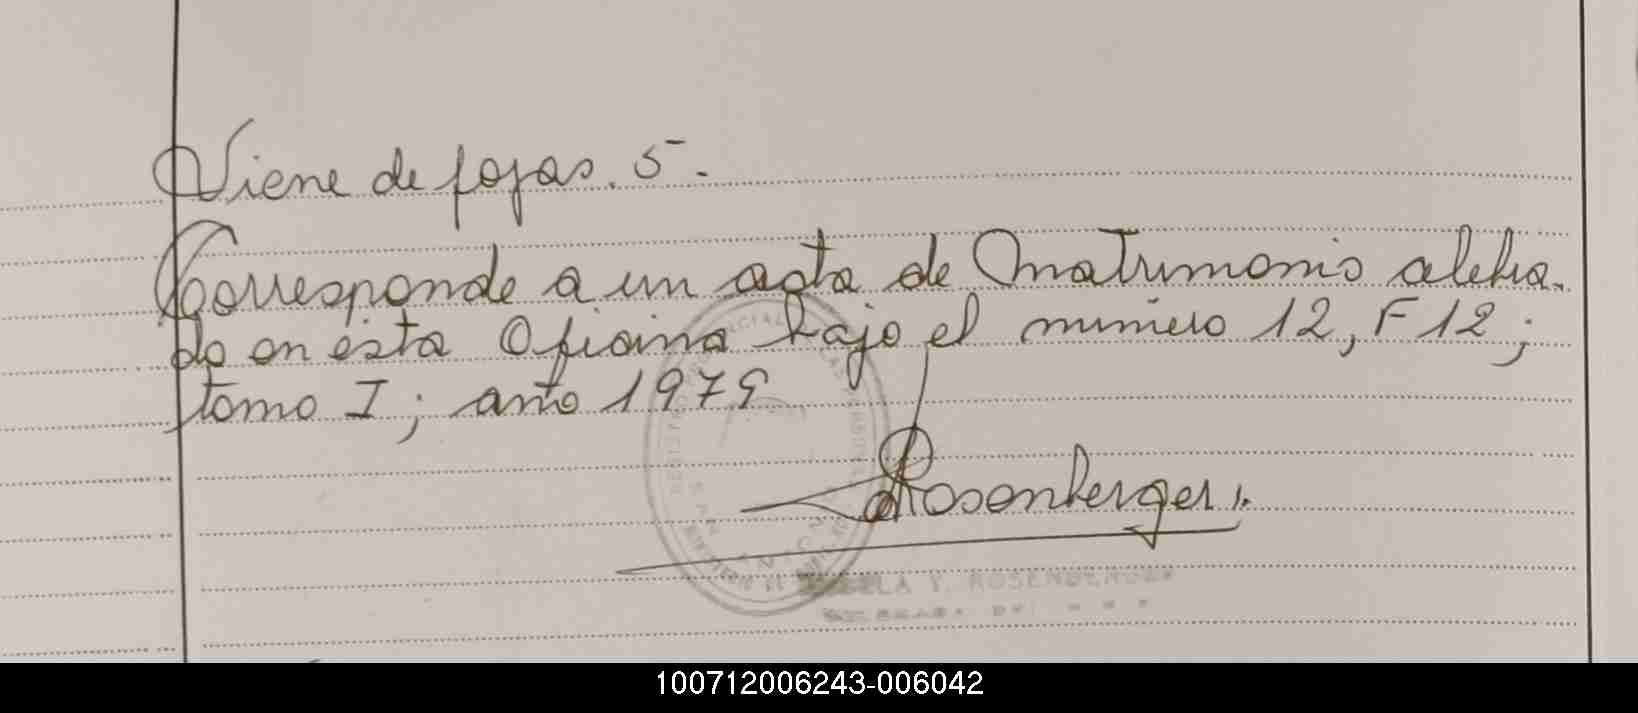 Viene de fojas. 5-.
Corresponde a un acta de Matrimonio celebra-
do en ésta Oficina bajo el número 12, F 12;
tomo I; año 1979
Rosenberger
Y. ROSENBERGER
100712006243-006042